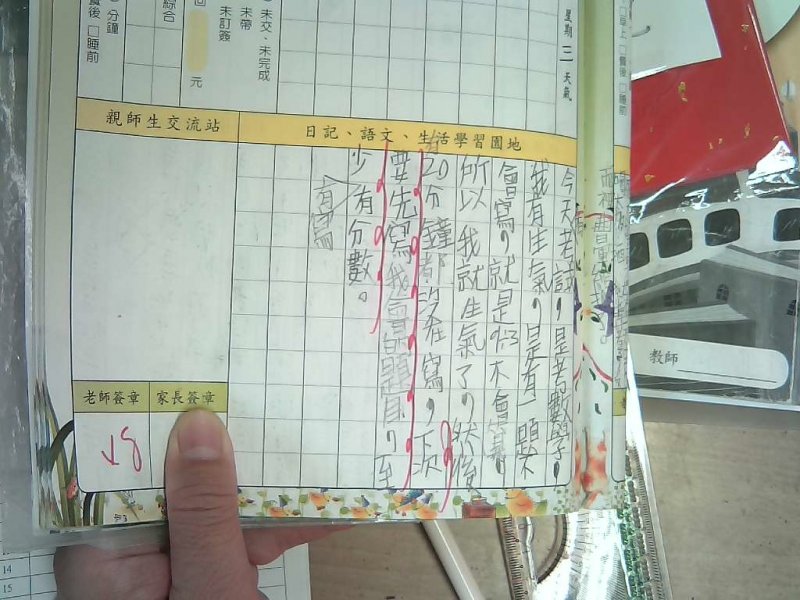 星期 二 天氣
未交、未完成
未帶
未訂簽
元
綜合
分鐘
餐後 □睡前
親師生交流站
日記、語文、生活學習園地
今天考試，是考數學，
我有生氣，是有一題不
會寫，就是不會寫，
所以我就生氣了，然後
有20分鐘都沒在寫，下次
要先寫我會的題目，至
少有分數。
有寫
老師簽章
家長簽章
早上 □餐後 □睡前
教師
14
15